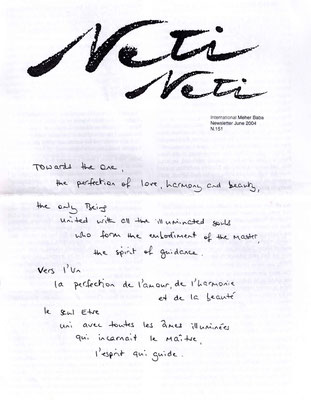 Neti
Neti
International Meher Baba
Newsletter June 2004
N.151
Towards the One,
the perfection of love, harmony and beauty,
the only Being
united with all the illuminated souls
who form the embodiment of the Master,
the spirit of guidance.
Vers l'Un
la perfection de l'amour, de l'harmonie
et de la beauté
le seul Etre
uni avec toutes les âmes illuminées
qui incarnait le Maître,
l'esprit qui guide.